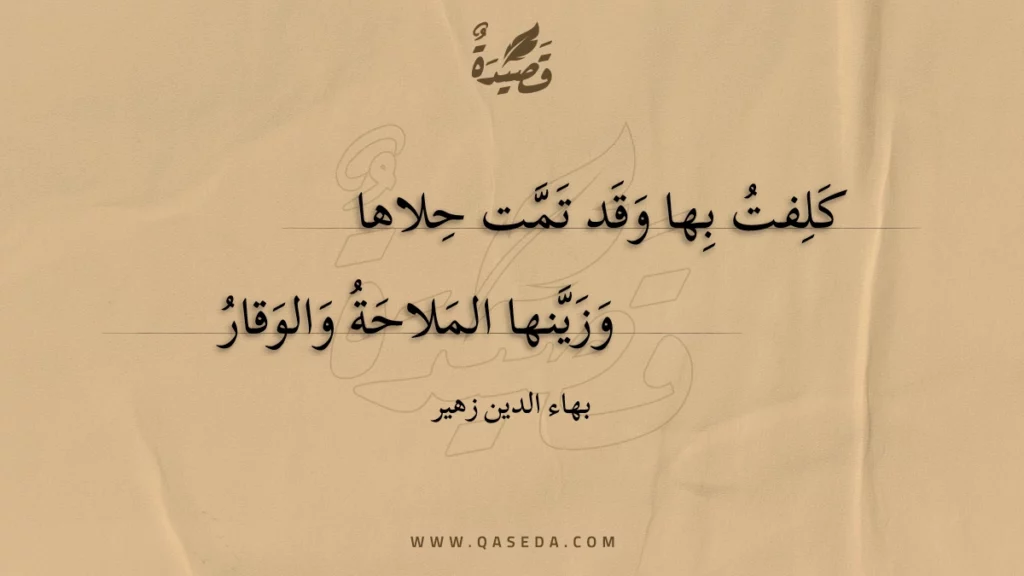 قَصِيْدَةٌ
كَلِفتُ بِها وَقَد تَمَّت حِلاها
وَزَيَّنها المَلاحَةُ وَالوَقارُ
بهاء الدين زهير
WWW.QASEDA.COM